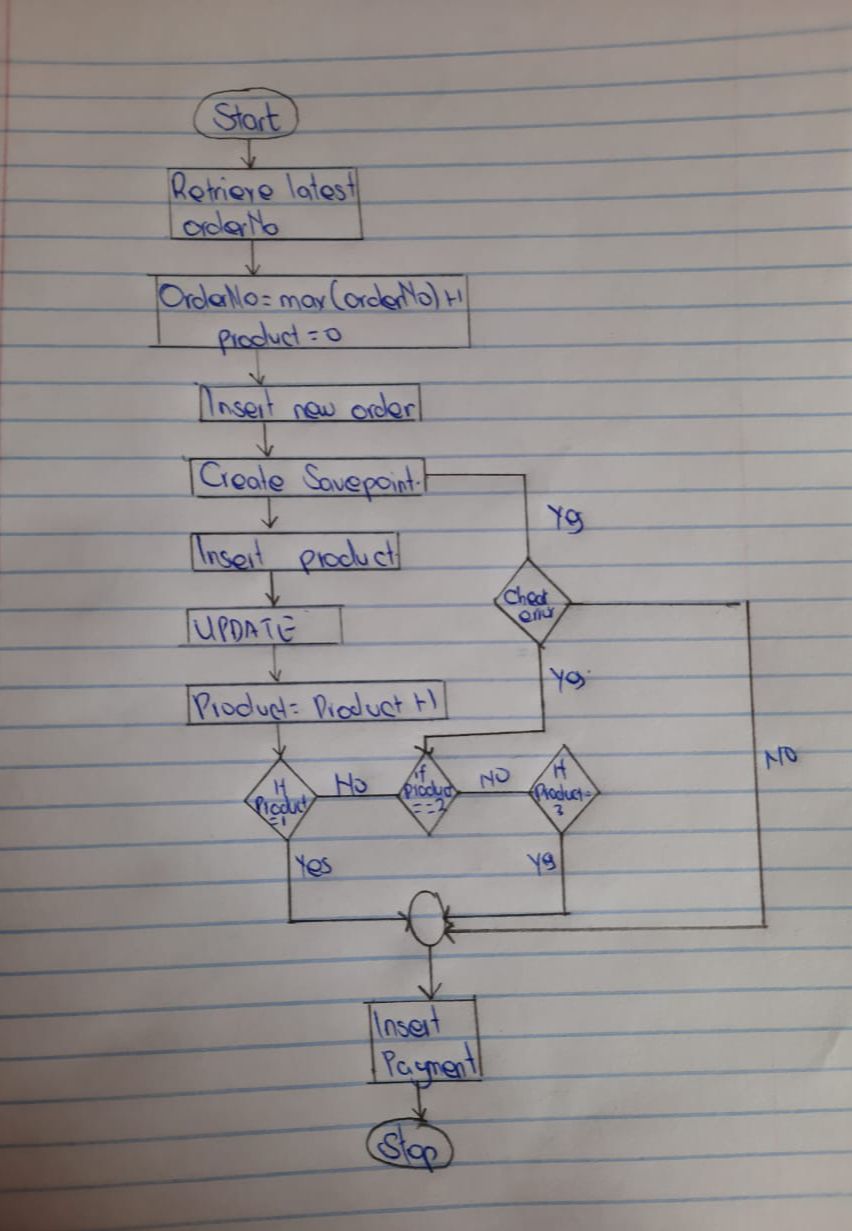 Start
Retrieve latest
orderNo
OrderNo=max(orderNo)+1
product=0
Insert new order
Create Savepoint.
Yes
Insert product
Check
error
UPDATE
Yes
Product= Product +1
If
Product
=1
No
if
Product
==2
NO
If
Product=
3
NO
Yes
Yes
Insert
Payment
Stop